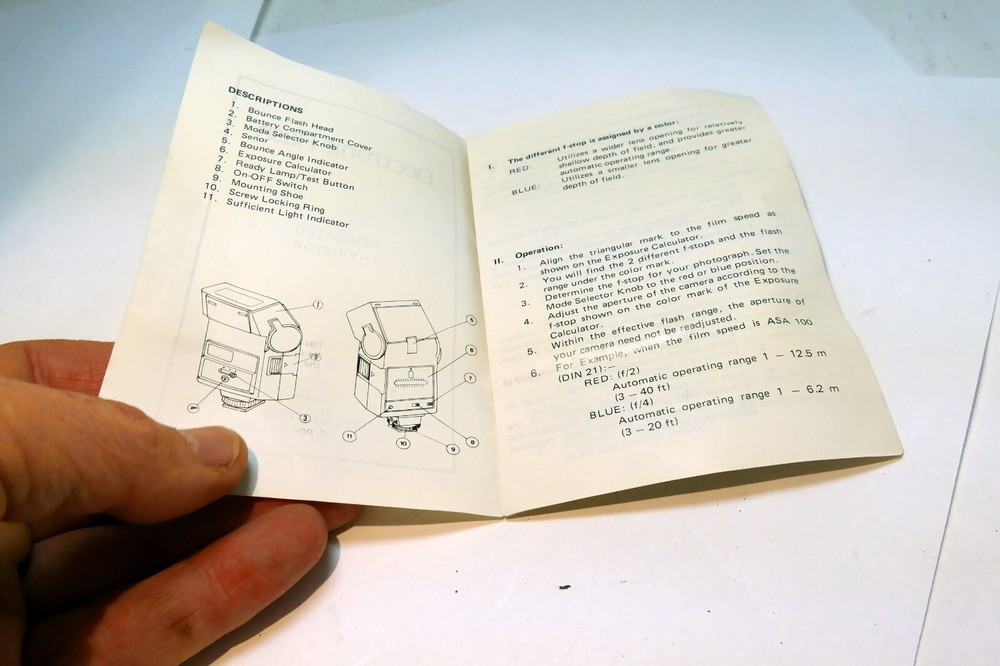 DESCRIPTIONS
1. Bounce Flash Head
2. Battery Compartment Cover
3. Moda Selector Knob
4. Senor
5. Bounce Angle Indicator
6. Exposure Calculator
7. Ready Lamp/Test Button
8. On-OFF Switch
9. Mounting Shoe
10. Screw Locking Ring
11. Sufficient Light Indicator
1
2
3
4
5
6
7
8
9
10
11
I. The different f-stop is assigned by a color:
RED: Utilizes a wider lens opening for relatively
shallow depth of field, and provides greater
automatic operating range.
BLUE: Utilizes a smaller lens opening for greater
depth of field.
II. Operation:
1. Align the triangular mark to the film speed as
shown on the Exposure Calculator.
2. You will find the 2 different f-stops and the flash
range under the color mark.
3. Determine the f-stop for your photograph. Set the
Mode Selector Knob to the red or blue position.
4. Adjust the aperture of the camera according to the
f-stop shown on the color mark of the Exposure
Calculator.
5. Within the effective flash range, the aperture of
your camera need not be readjusted.
6. For Example, when the film speed is ASA 100
(DIN 21):—
RED: (f/2)
Automatic operating range 1 — 12.5 m
(3 — 40 ft)
BLUE: (f/4)
Automatic operating range 1 — 6.2 m
(3 — 20 ft)